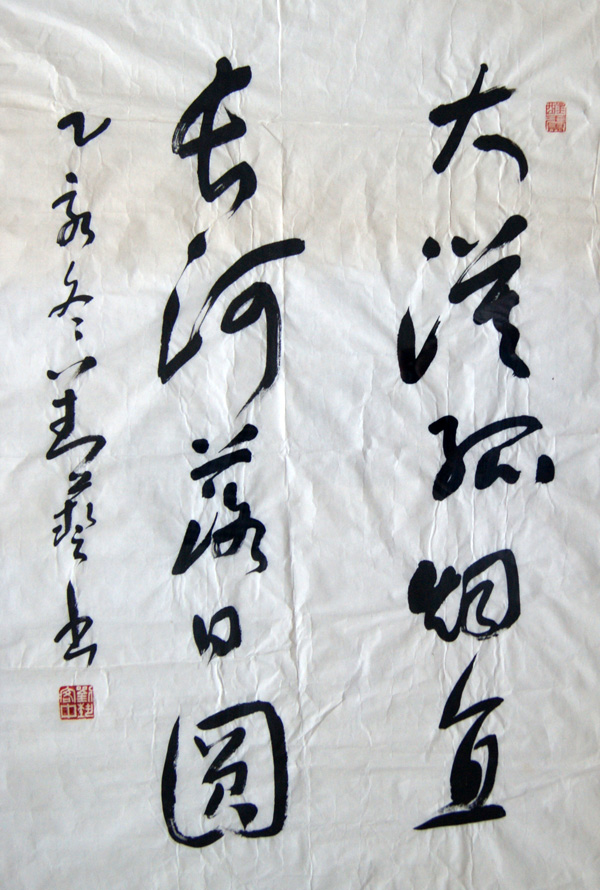 大漠孤烟直
长河落日圆
乙亥冬 艺书